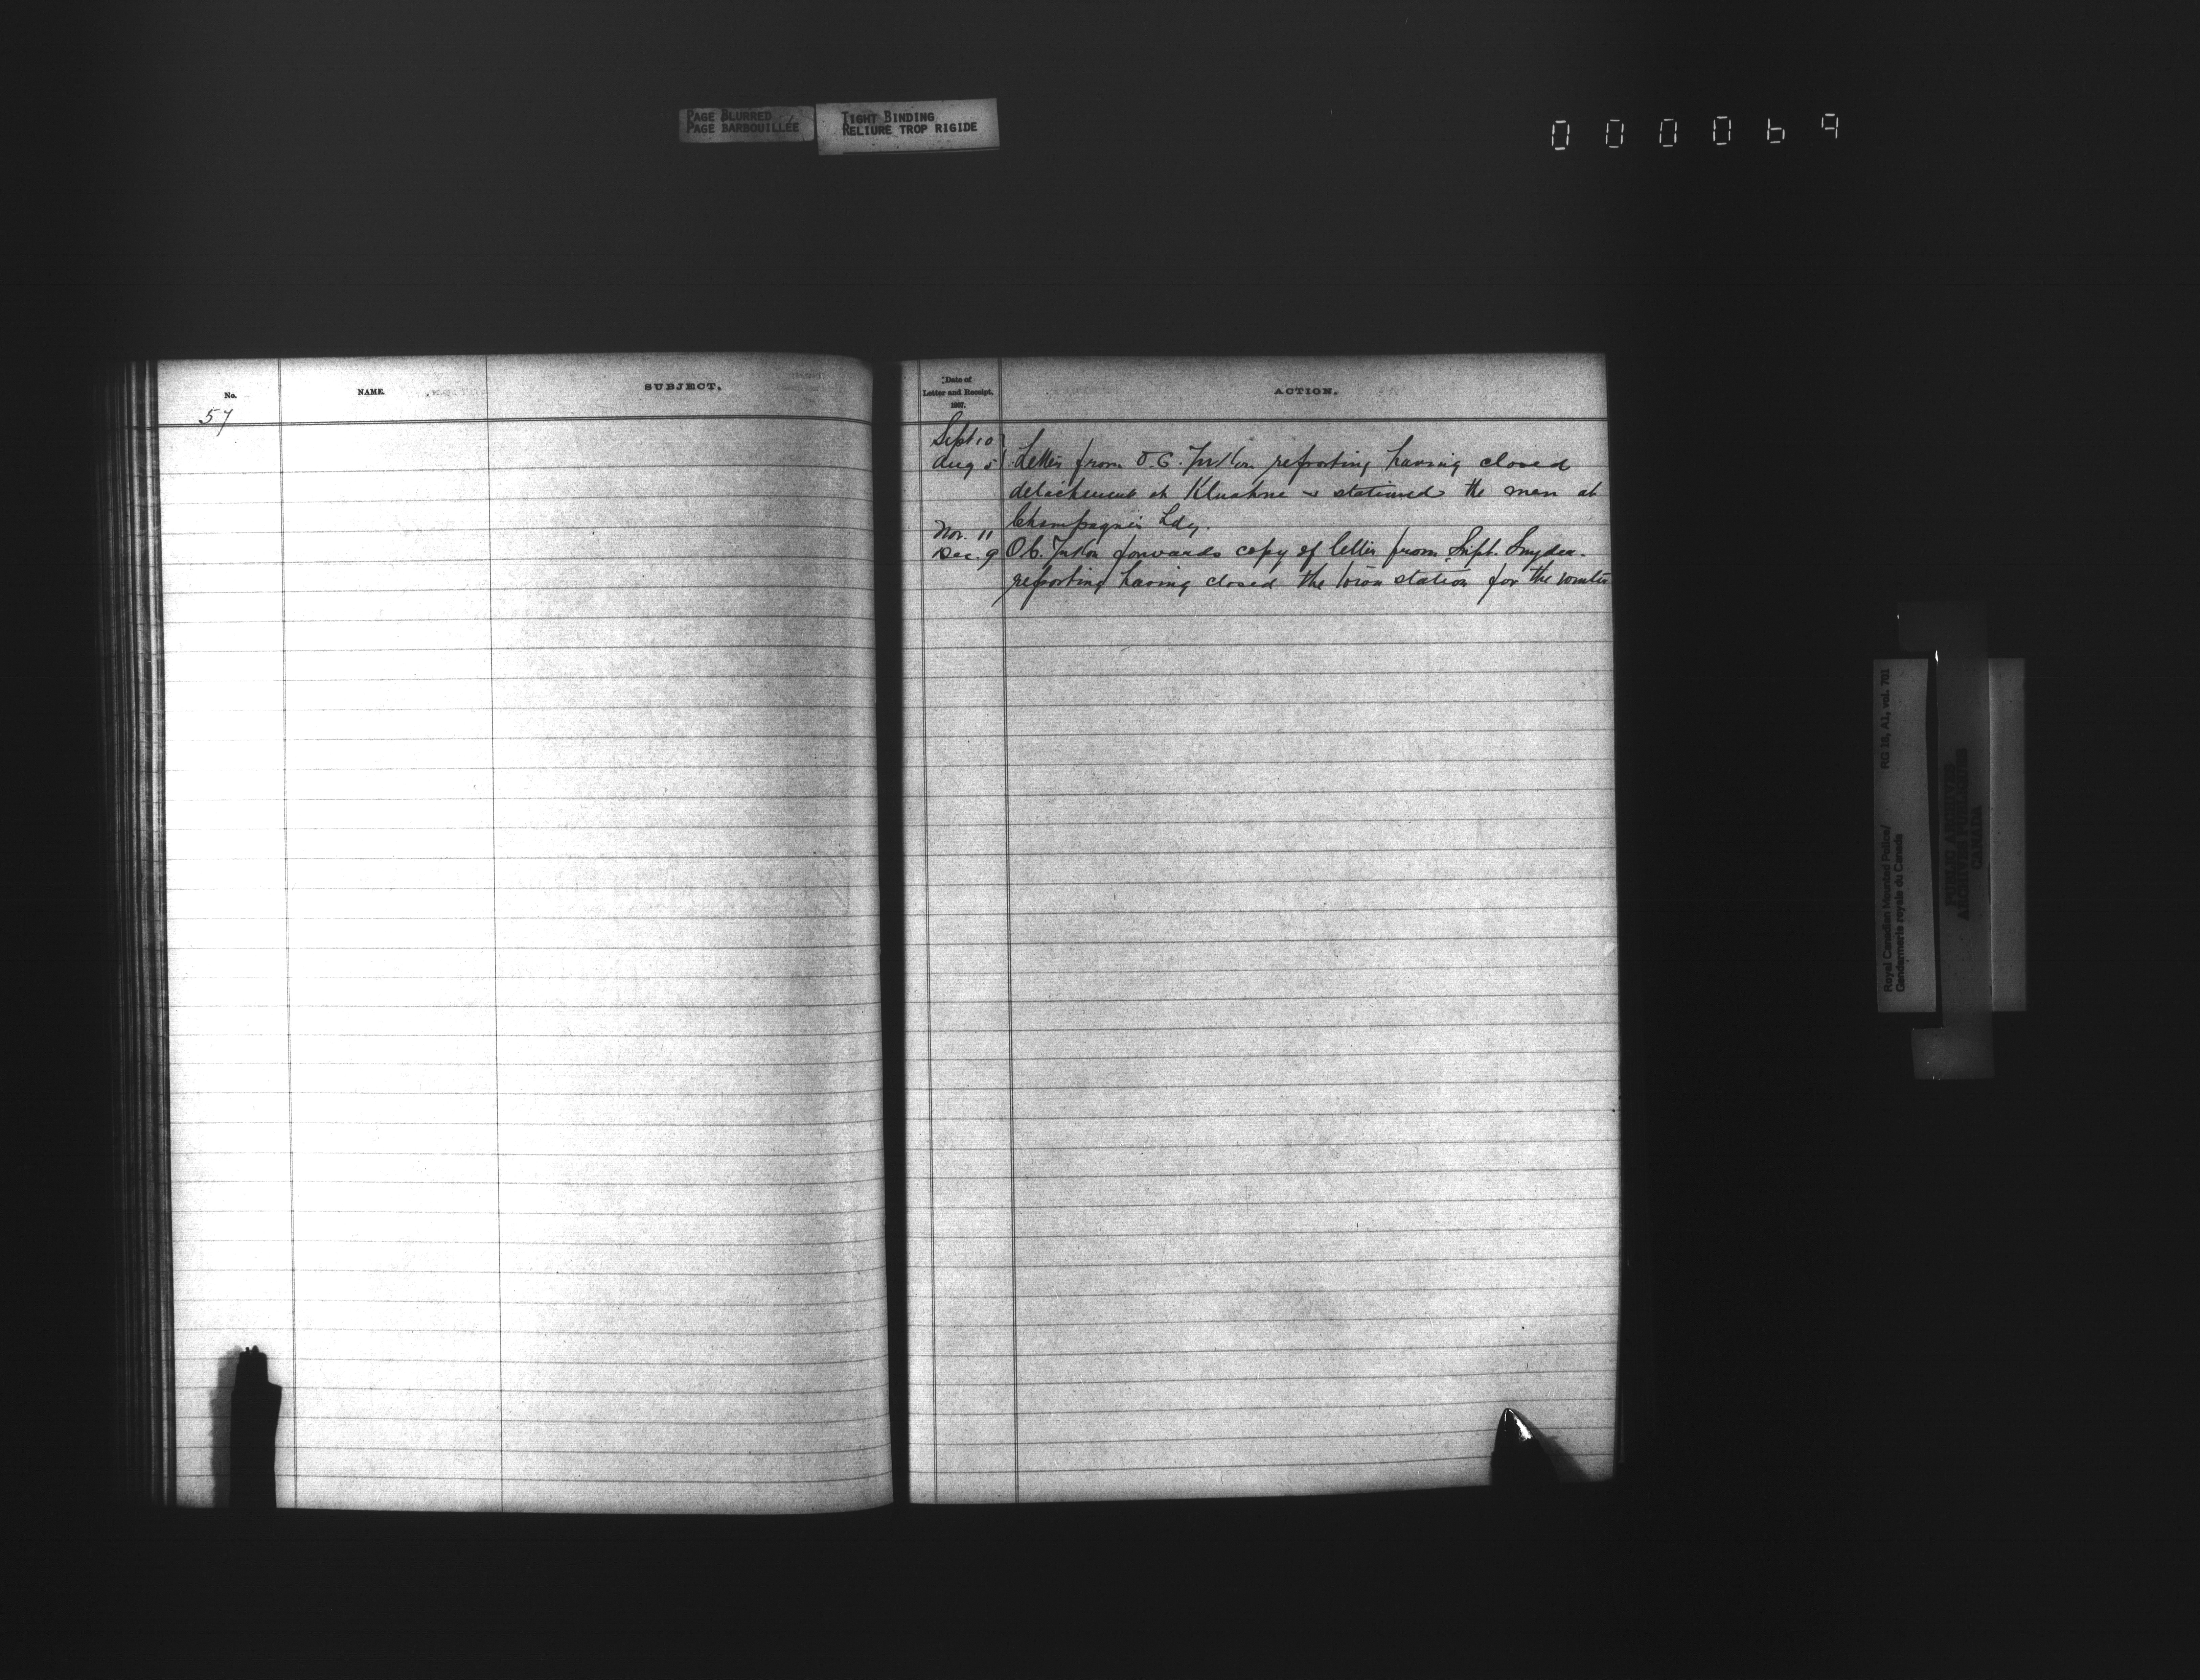 PAGE BLURRED
PAGE BARBOUILLÉE
TIGHT BINDING
RELIURE TROP RIGIDE
000069
No.
NAME.
SUBJECT.
57
Date of
Letter and Receipt.
1907.
ACTION.
Sept 10
Aug 5 Letter from O.C. Yukon reporting having closed
detachment at Kluahne & stationed the men at
Champagnes Ldg.
Nov. 11
Dec. 9 O.C. Yukon forwards copy of letter from Supt. Snyder
reporting having closed the town station for the winter
Royal Canadian Mounted Police/
Gendarmerie royale du Canada
RG 18, A1, vol. 781
PUBLIC ARCHIVES
ARCHIVES PUBLIQUES
CANADA